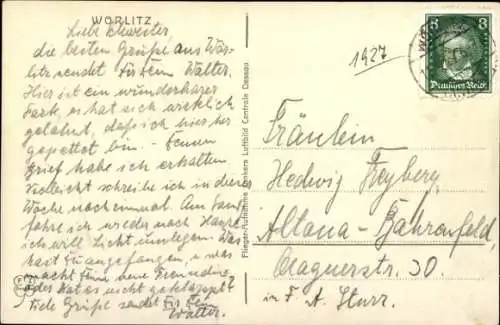 WÖRLITZ
Liebe Schwester,
die besten Grüße aus Wör-
litz sendet Dir Dein Walter.
Hier ist ein wunderbarer
Park, es hat sich wirklich
gelohnt, daß ich hier her
bin. - Deinen
Brief habe ich erhalten
Vielleicht schreibe ich in dieser
Woche noch einmal. Am
fahre ich wieder nach
ich will Licht umlegen. Was
hast Du angefangen, u. was
macht Deine neue Freundin,
oder hat es nicht geklappt?
Grüße sendet Dir Dein
Walter.
Flieger-Aufnahme Junkers Luftbild Centrale Dessau
1927
8
8
Deutsches Reich
Fräulein
Hedwig Freyberg
Altona-Bahrenfeld
30.
in F. A. Sturr.